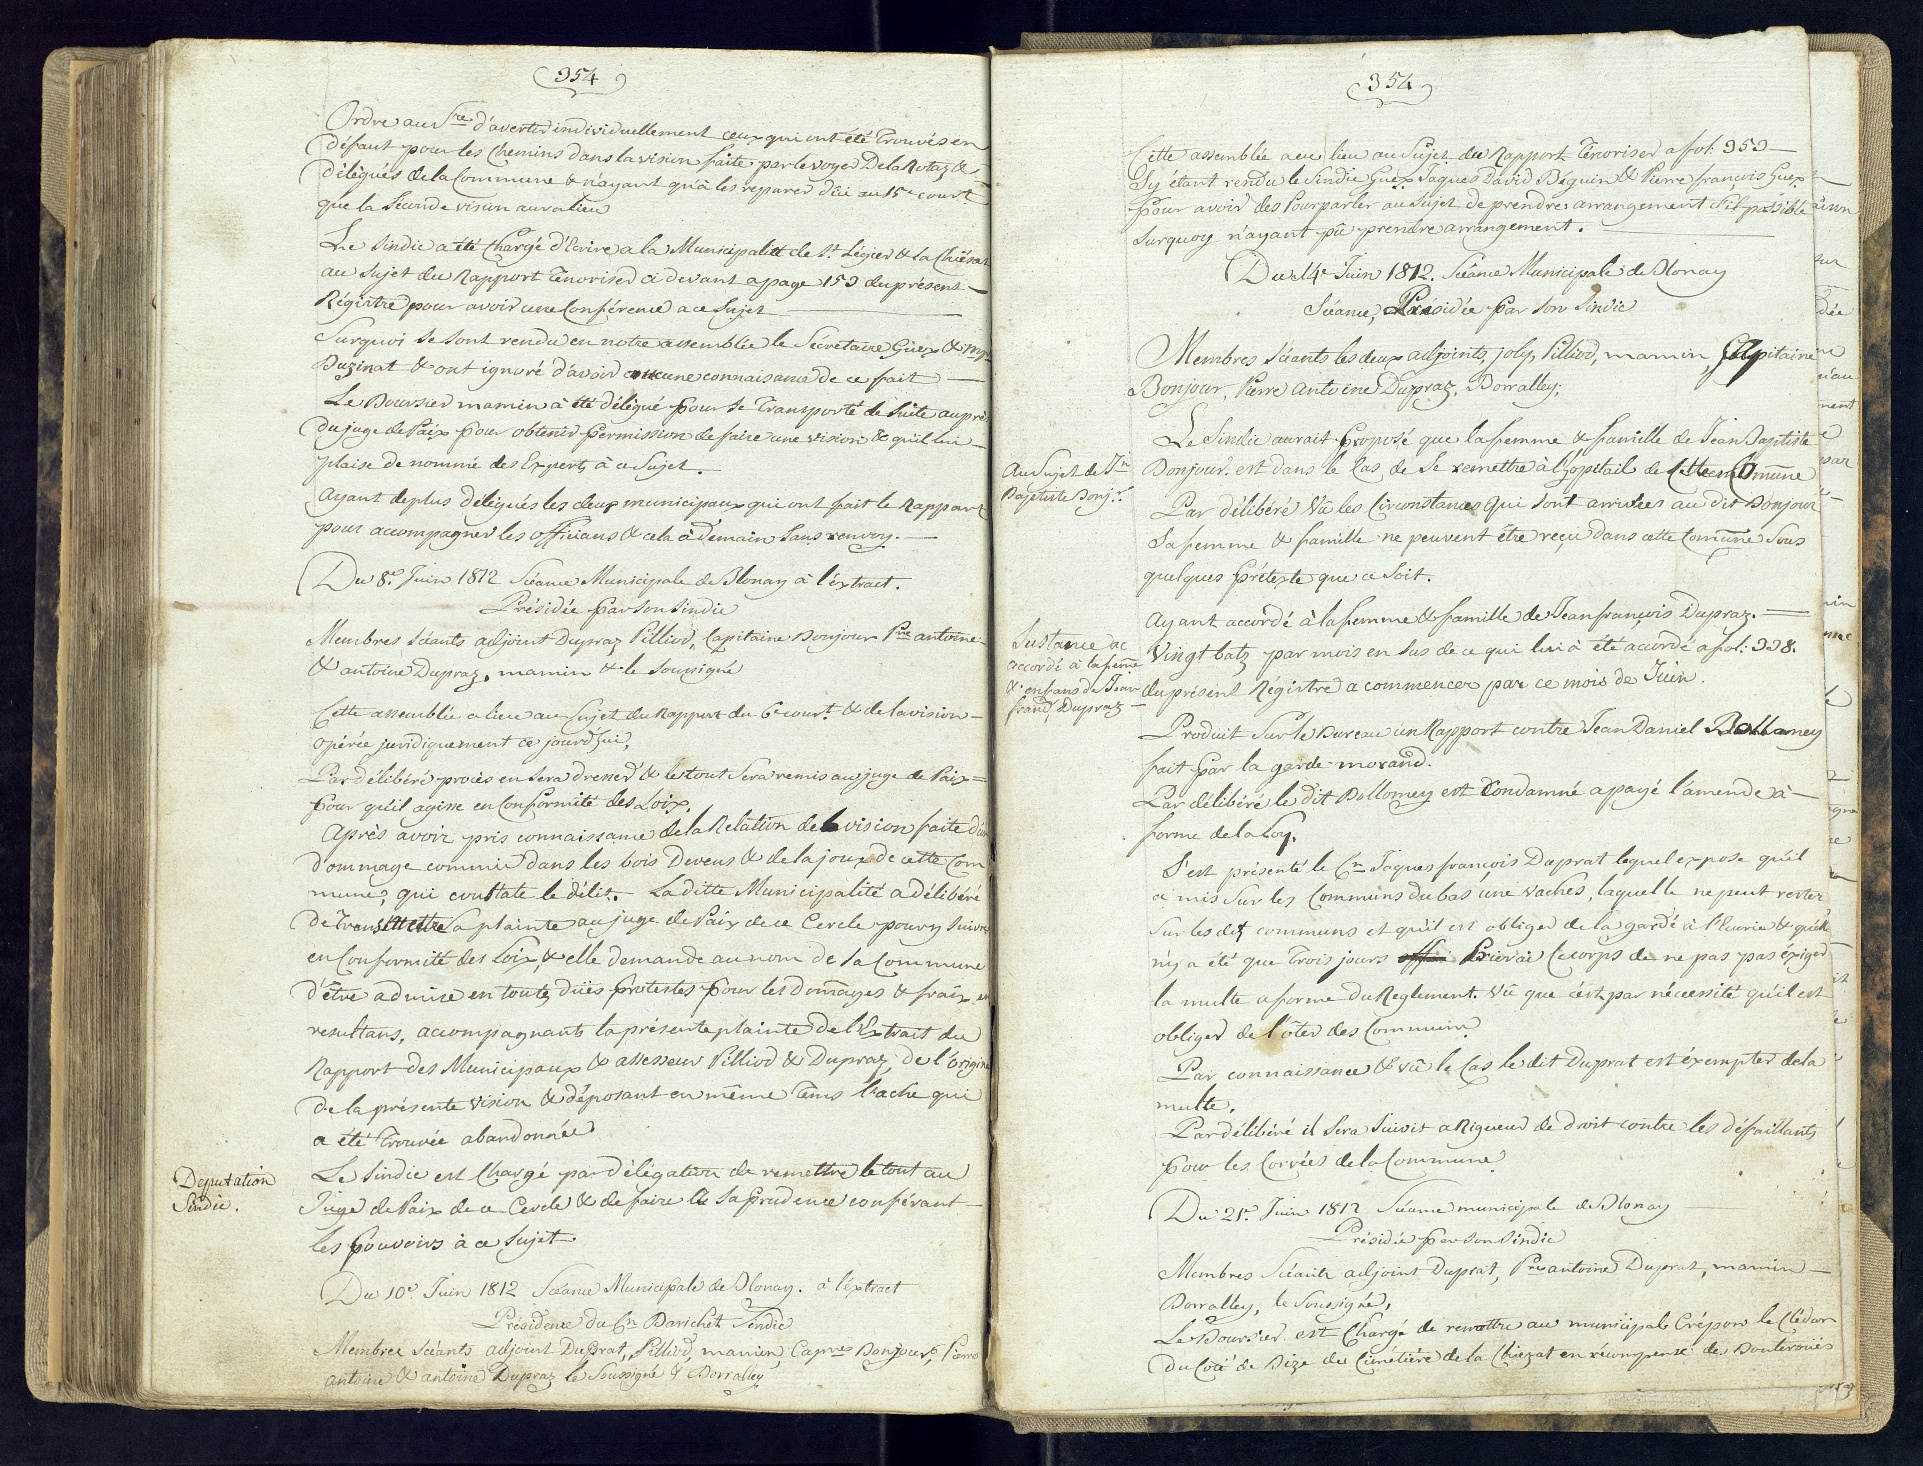 354
Ordre au Sre. d'avertir individuellement ceux qui ont été Trouvés en
défaut pour les Chemins dans la vision faite par le voyer De la Rotaz &
délégués de la Commune & n'ayant qu'à les reparer d'ici au 15e court
que la Seconde vision aura lieu
Le Sindic a été Chargé d'Ecrire a la Municipalité de St. Légier & la Chiésaz
au Sujet du Rapport Tenorisé ci devant a page 153 du présent
Régistre pour avoir une Conférence a ce Sujet
Surquoi Se Sont rendu en notre assemblée le Sécretaire Guex &
Duginat & ont ignoré d'avoir aucune connaisance de ce fait
Le Boursier mamin à été délégué pour Se Transporté de Suite auprès
du juge de Paix pour obtenir permission de faire une vision & qu'il lui
plaise de nommé des Experts à ce Sujet.
Ayant de plus délégués les deux municipaux qui ont fait le Rapport
pour accompagner les officians & cela à demain Sans renvoy.
Du 8e. Juin 1812 Séance Municipale de Blonay à l'éxtract.
Présidée par Son Sindic
Membres Séants adjoint Dupraz Pilliod, Capitaine Bonjour Pre antoine
& antoine Dupraz, mamin & le Soussigné
Cette assemblée a lieu au Sujet du Rapport du 6e court. & de la vision
opérée juridiquement ce jourd'hui,
Par délibéré procès en Sera dressé & le tout Sera remis au juge de Paix
pour qu'il agisse en Conformité des Loix,
Après avoir pris connaissance de la Relation de la vision faite d'un
Dommage commis dans les bois Devens & de la joux de cette Com
mune, qui constate le délit. La ditte Municipalité a délibéré
de Transmettre Sa plainte au juge de Paix de ce Cercle pour y Suivre
en Conformité des Loix, & elle demande au nom de Sa Commune
d'être admise en toutes dües protestes pour les Domages & fraix en
resultans, accompagnants la présente plainte de l'Extrait du
Rapport des Municipaux & assesseur Pilliod & Dupraz, de l'origine
de la présente vision & déposant en même Tems l'ache qui
a été Trouvée abandonnée
Deputation
Sindic.
Le Sindic est Chargé par délégation de remettre le tout au
Juge de Paix de ce Cercle & de faire de Sa prudence conférant
les pouvoirs à ce Sujet.
Du 10e Juin 1812 Séance Municipale de Blonay. à l'éxtract
Présidence du Cn Barichet Sindic
Membres Séants adjoint Duprat, Pilliod, mamin, Capne Bonjour, Pierre
antoine & antoine Dupraz le Soussigné & Borralley
354
Cette assemblée a eu lieu au Sujet du Rapport Tenoriser a fol: 353
Sy étant rendu le Sindic Guex Jaques David Béguin & Pierre françois Guex
pour avoir des Pourparler au Sujet de prendre arrangement S'il possible
Surquoy n'ayant pû prendre arrangement.
Du 14e Juin 1812. Séance Municipale de Blonay
Séance, Présidée par Son Sindic
Membres Séants les deux adjoints, joly, Pilliod, mamin, Capitaine
Bonjour, Pierre Antoine Dupraz, Borralley;
Au Sujet de Jn
Baptiste Bonjr.
Le Sindic aurait proposé que la femme & famille de Jean Baptiste
Bonjour. est dans le Cas de Se remettre à l'hopitail de Cette Comune
Par délibéré Vû les Circonstances Qui Sont arrivées au dit Bonjour
Sa femme & famille ne peuvent être reçu dans cette Comune Sous
quelques prétexte que ce Soit.
Sustance ac
accordé à la feme
& enfans de Jean
frans. Dupraz
Ayant accordé à la femme & famille de Jean françois Dupraz.
Vingt batz par mois en Sus de ce qui lui à été acordé a fol: 338.
du présent Régistre a commencer par ce mois de Juin.
Produit Sur le Bureau un Rapport contre Jean Daniel Bollomey
fait par la garde morand.
Par délibéré le dit Bollomey est Condamné a payé l'amende à
forme de la Loy.
S'est présenté le Cn Jaques françois Duprat lequel expose qu'il
a mis Sur les Communs du bas une Vaches, laquelle ne peut rester
Sur les dit communs et qu'il est obliger de la gardé à l'Ecurie & quelle
n'y a été que Trois jours Prierai le corps de ne pas pas éxiger
la multe a forme du Reglement. Vû que c'est par nécessité qu'il est
obliger de l'ôter des Communs
Par connaissance & vû le Cas le dit Duprat est éxempter de la
multe.
Par délibéré il Sera Suivit a Rigueur de droit contre les défaillants
pour les Corvées de la Commune
Du 21e. Juin 1812 Séance municipale de Blonay
Présidée par Son Sindic
Membres Séants adjoint Duprat, Pre antoine Duprat, mamin
Borralley, le Soussigné,
Le Boursier est Chargé de remettre au municipale Crépon le Clédar
du Coté de Bize du Cimétière de la Chiézat en récompense de Bouteroües